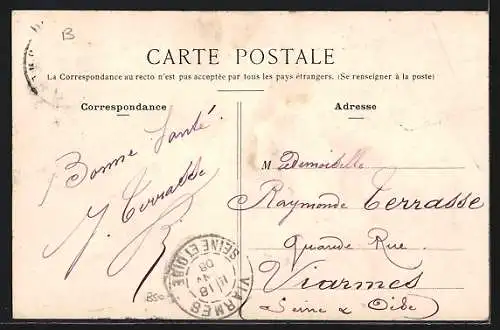 B
CARTE POSTALE
La Correspondance au recto n'est pas acceptée par tous les pays étrangers. (Se renseigner à la poste)
Correspondance
Adresse
Bonne Santé.
Terrasse
Mademoiselle
Raymonde Terrasse
Grande Rue.
Viarmes
Seine & Oise
VIARMES
SEINE ET OISE
18
08